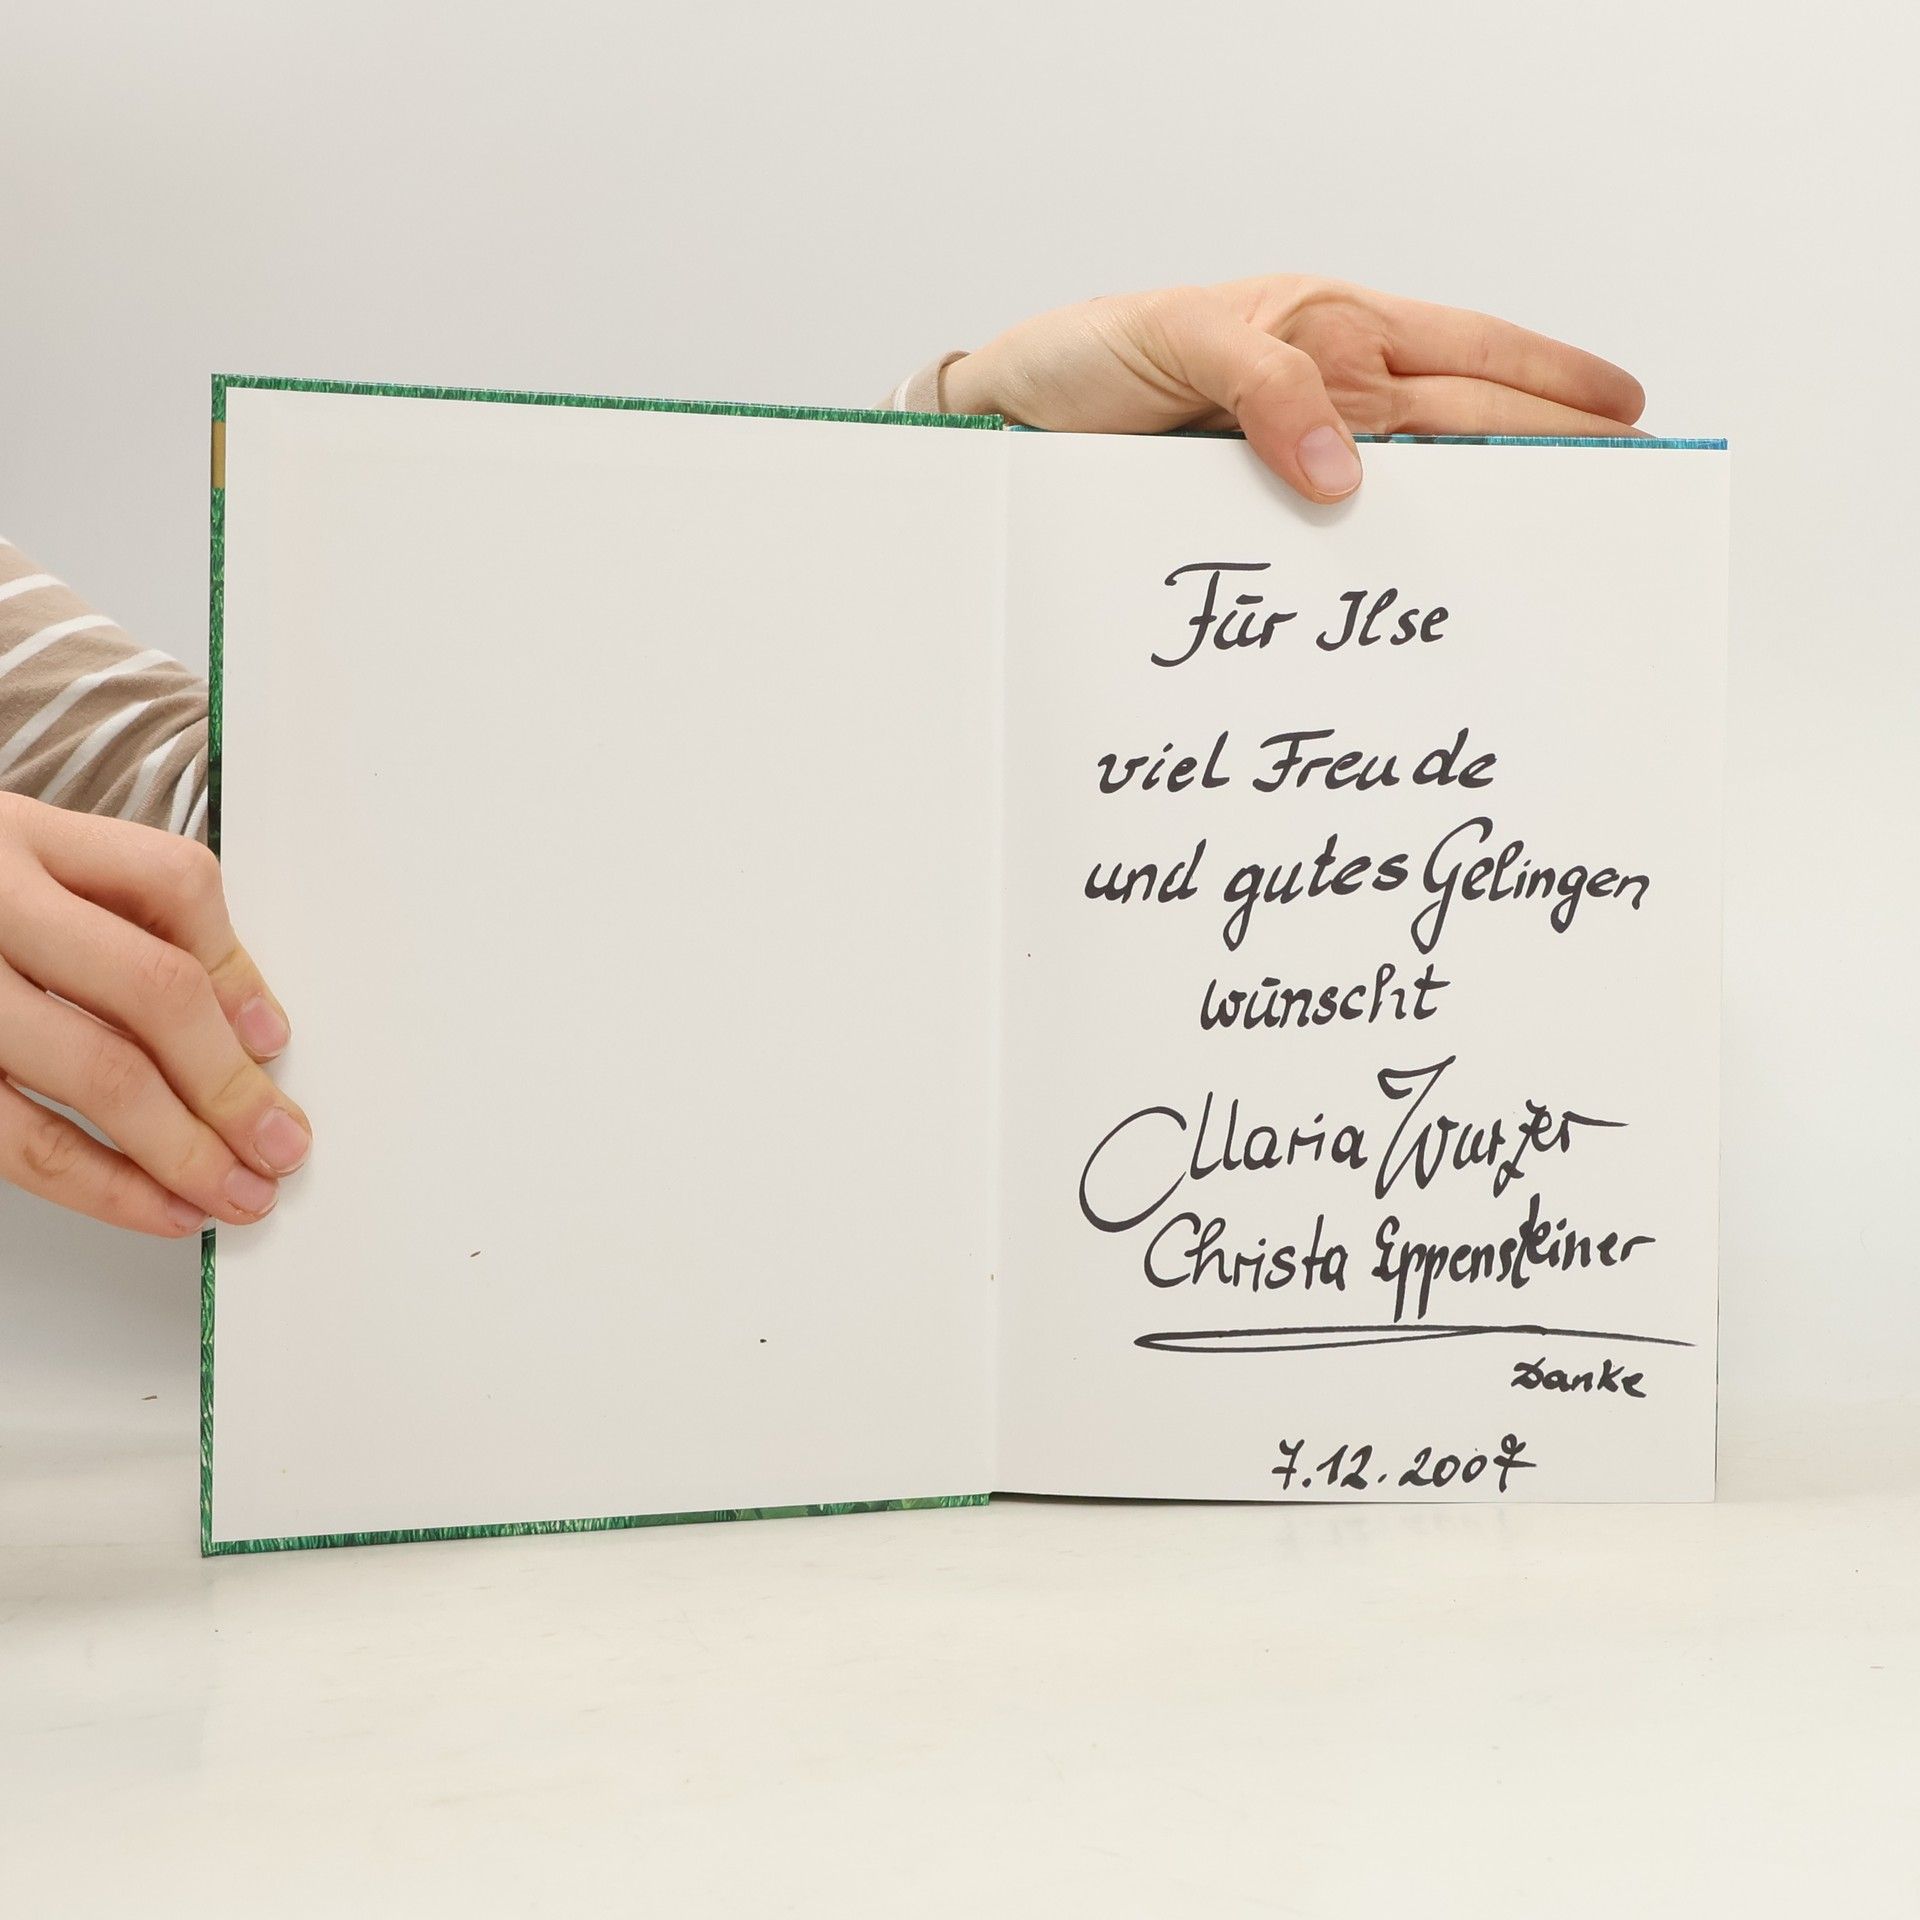 Für Ilse
viel Freude
und gutes Gelingen
wünscht
Maria Wurzer
Christa Eppensteiner
Danke
7.12.2007